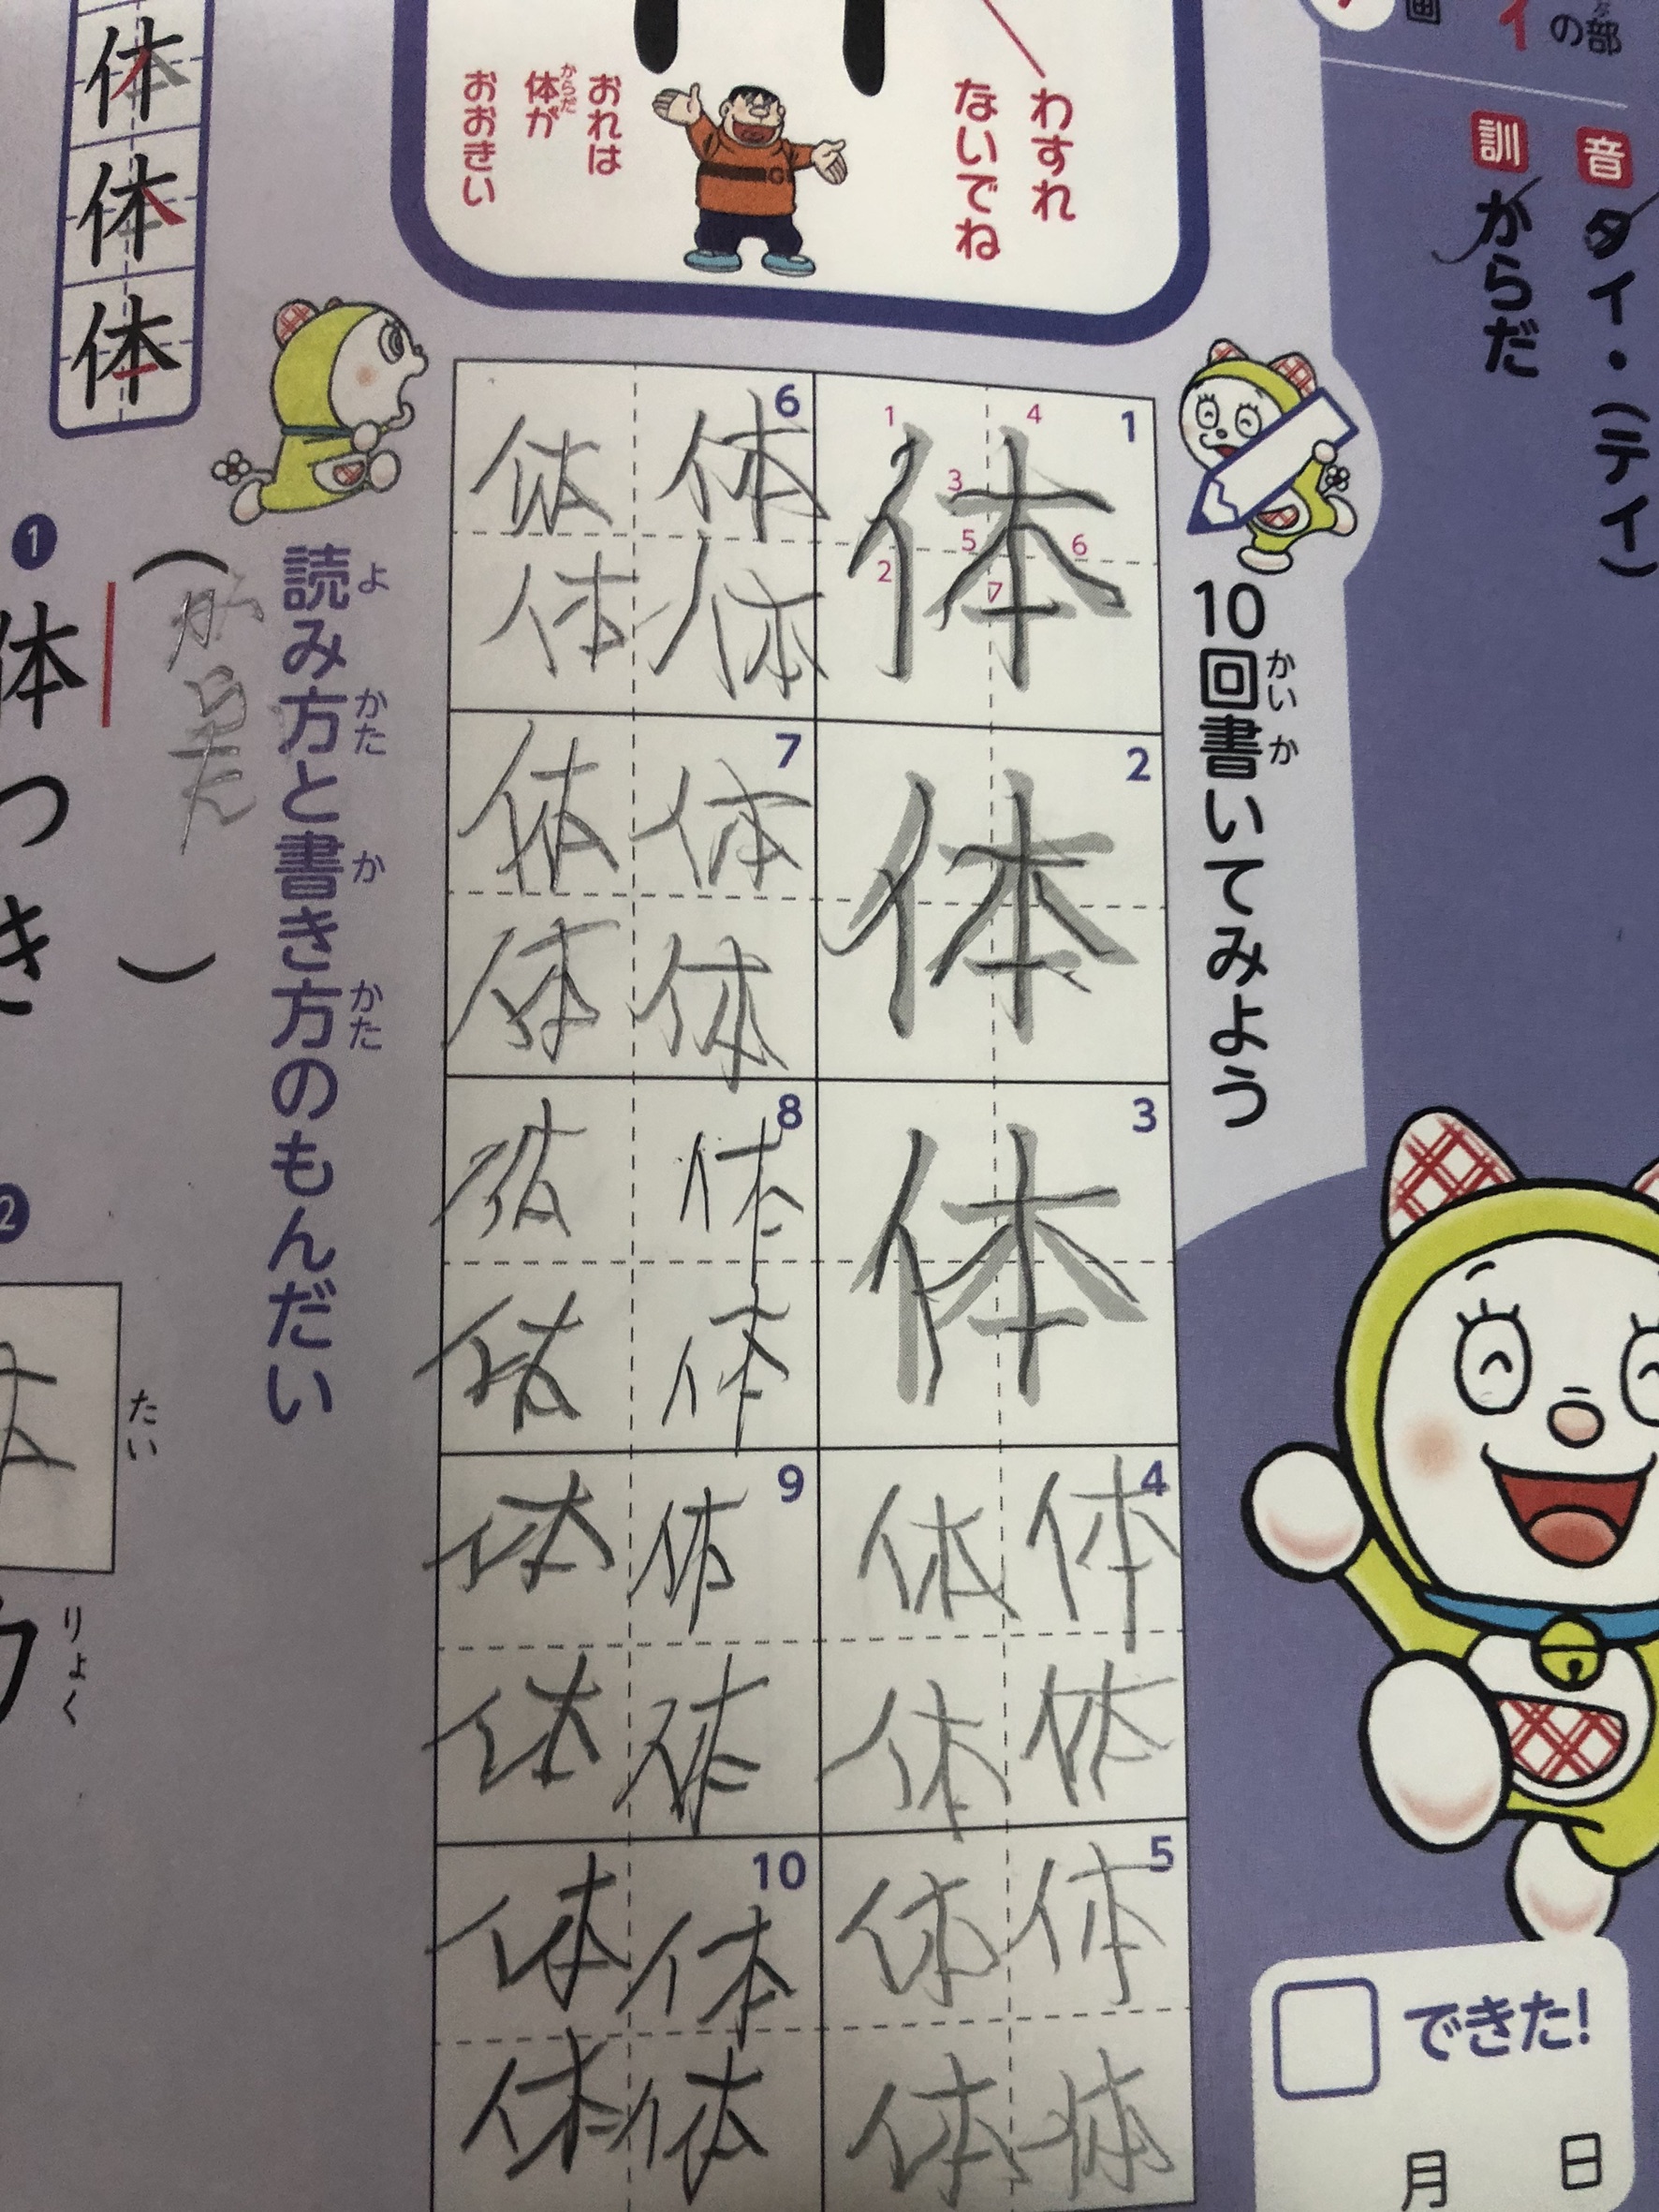 画
イの部
ぶ
音 タイ・(テイ)
訓 からだ
わすれ
ないでね
おれは
体が
からだ
おおきい
G
体
体
体
10回書いてみよう
かい か
1 体
1 2 3 4 5 6 7
2 体
3 体
4 体 体
体 体
5 体 体
体 体
6 体 体
体 体
7 体 体
体 体
8 体 体
体 体
9 体 体
体 体
10 体 体
体 体
できた!
月 日
読み方と書き方のもんだい
よ かた か かた
1 体つき
(からだ)
2
たい
りょく